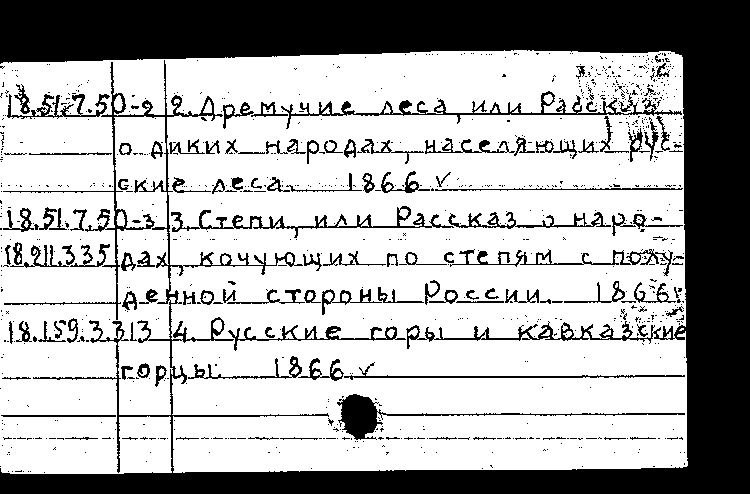 18.51.7.50-2 2. Дремучие леса, или Рассказ
о диких народах, населяющих рус-
ские леса. 1866 ✓
18.51.7.50-3 3. Степи, или Рассказ о наро-
18.211.3.35 дах, кочующих по степям с полу-
денной стороны России. 1866
18.159.3.313 4. Русские горы и кавказские
горцы. 1866. ✓